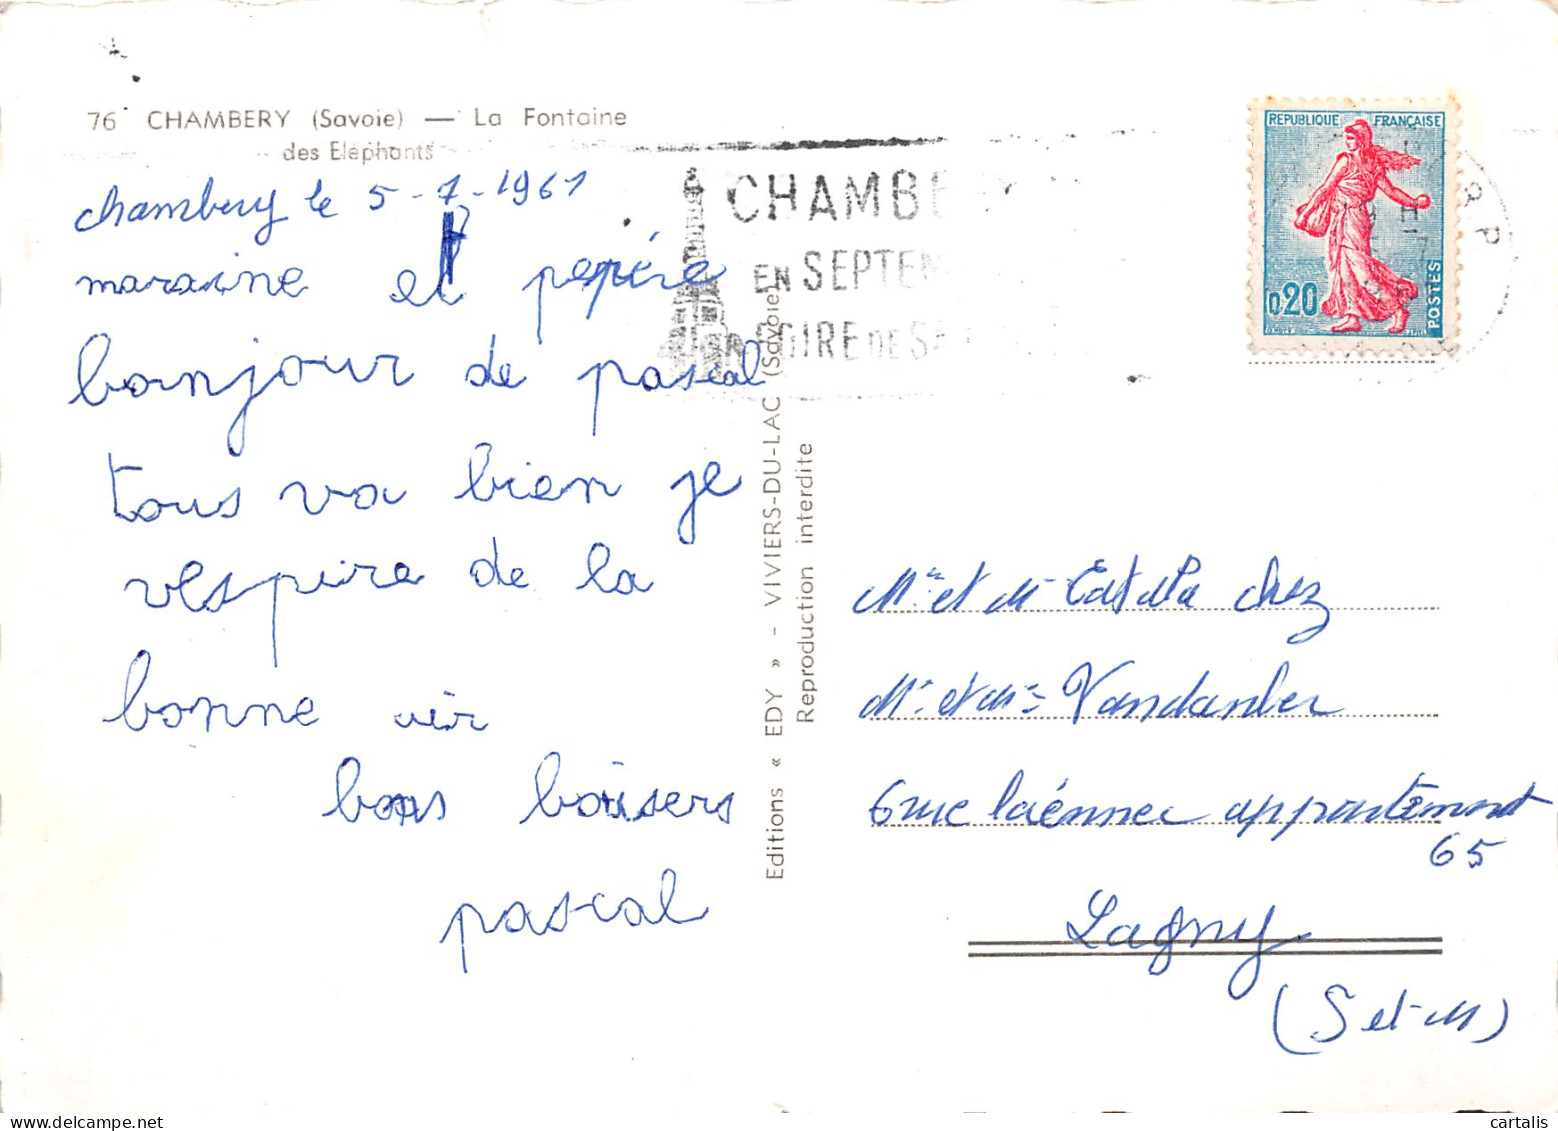 76 CHAMBERY (Savoie) — La Fontaine
des Eléphants
chambery le 5-7-1961
marraine et pepére
bonjour de pascal
tous va bien je
respire de la
bonne air
bons baisers
pascal
CHAMBE
EN SEPTEM
FOIRE DE SA
REPUBLIQUE FRANÇAISE
0,20
POSTES
Editions « EDY » - VIVIERS-DU-LAC (Savoie)
Reproduction interdite
Mr et Me chez
Mr et Me Vandamber
6 rue laénnec appartement
65
Lagny
(S et-M)
cartalis